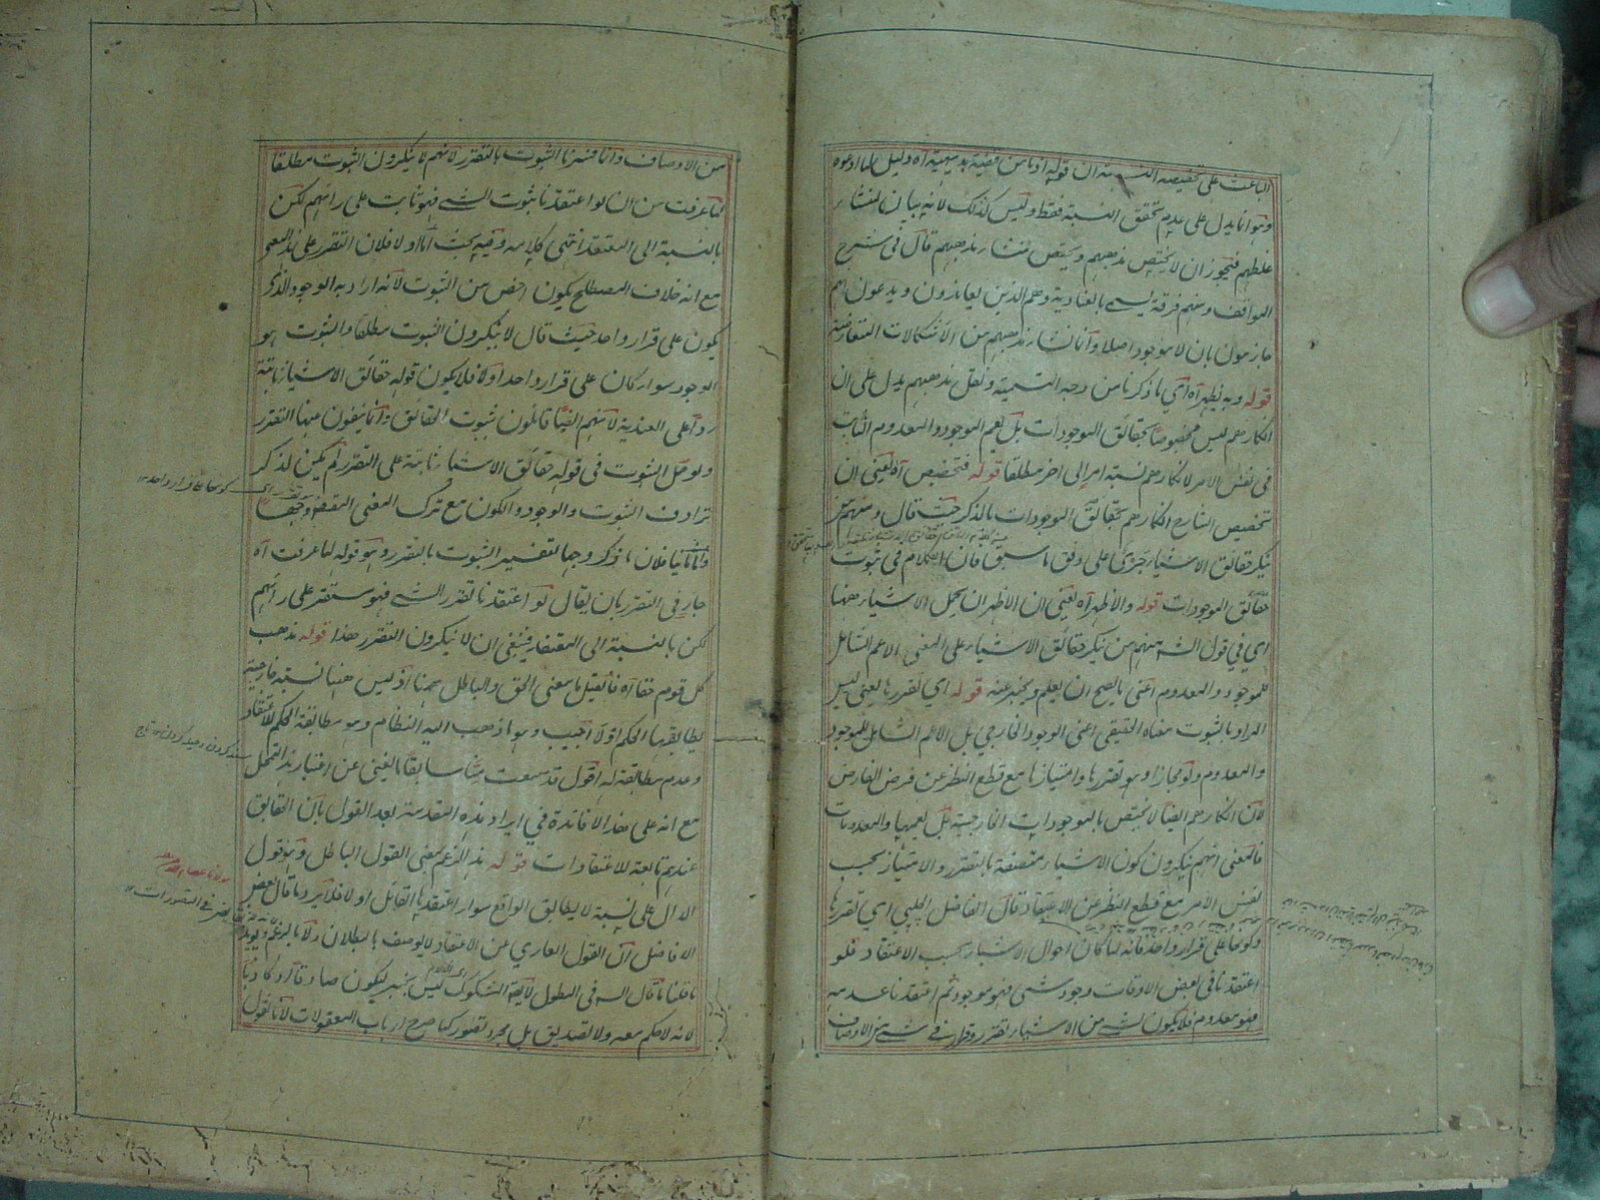 الباعث على تخصيصه النسبة ان قوله اذ ما من قضية بديهية آه دليل لما ادعوه
وهو انما يدل على عدم تحقق النسبة فقط وليس كذلك لانه بيان لمنشأ
غلطهم فيجوز ان لا يختص مذهبهم ويختص منشأ مذهبهم قال فى شرح
المواقف ومنهم فرقة يسمى بالعنادية وهم الذين يعاندون ويدعون انهم
جازمون بان لا موجود اصلا وانما نشأ مذهبهم من الاشكالات المتعارضة
قوله وبه يظهر آه اي بما ذكرنا من وجه التسمية ونقل مذهبهم يدل على ان
انكارهم ليس مخصوصا بحقائق الموجودات بل يعم الموجود والمعدوم الثابت
فى نفس الامر لانكارهم نسبة امر الى اخر مطلقا قوله فتخصيص آه يعنى ان
تخصيص الشارح انكارهم بحقائق الموجودات بالذكر حيث قال ومنهم من
ينكر حقائق الاشياء جرى على وفق ما سبق فان الكلام فى ثبوت
حقائق الموجودات قوله والاظهر آه يعنى ان الاظهر ان يحمل الاشياء ههنا
اي في قول الش منهم من ينكر حقائق الاشياء على المعنى الاعم الشامل
للموجود والمعدوم اعنى ما يصح ان يعلم ويخبر عنه قوله اي تقررها يعنى ليس
المراد بالثبوت معناه الحقيقى اعنى الوجود الخارجي بل الاعم الشامل للموجود
والمعدوم ولو مجازا وهو تقررها وامتيازها مع قطع النظر عن فرض الفارض
لان انكارهم ايضا لا يختص بالموجودات الخارجية بل يعمها والمعدومات
فالمعنى انهم ينكرون كون الاشياء متصفة بالتقرر والامتياز بحسب
نفس الامر مع قطع النظر عن الاعتقاد قال الفاضل الچلپي اي تقررها
وكونها على قرار واحد فانه لما كان احوال الاشياء بحسب الاعتقاد فلو
اعتقدنا فى بعض الاوقات وجود شئ فهو موجود ثم اعتقدنا عدمه
فهو معدوم فلا يكون لشئ من الاشياء تقرر وقرار فى شئ من الاوصاف
من الاوصاف وانما فسرنا الثبوت بالتقرر لانهم لا ينكرون الثبوت مطلقا
لما عرفت من ان لو اعتقدنا ثبوت الشئ فهو ثابت على رائهم لكن
بالنسبة الى المعتقد انتهى كلامه وفيه بحث اما اولا فلان التقرر على هذا المعنى
مع انه خلاف المصطلح يكون اخص من الثبوت لانه اراد به الوجود الذى
يكون على قرار واحد حيث قال لا ينكرون الثبوت مطلقا والثبوت هو
الوجود سواء كان على قرار واحد اولا فلا يكون قوله حقائق الاشياء ثابتة
ردا على العندية لانهم ايضا قائلون ثبوت الحقائق وانما ينفون عنها التقرر
ولو حمل الثبوت فى قوله حقائق الاشياء ثابتة على التقرر لم يكن لذكر
ترادف الثبوت والوجود والكون مع ترك المعنى المقصود وجها
واما ثانيا فلان ما ذكر وجها لتفسير الثبوت بالتقرر وهو قوله لما عرفت آه
جار فى التقرر بان يقال لو اعتقدنا تقرر الشئ فهو متقرر على رائهم
لكن بالنسبة الى المعتقد فينبغى ان لا ينكرون التقرر هذا قوله مذهب
كل قوم حقا آه فان قيل ما معنى الحق والباطل ههنا اذ ليس ههنا نسبة خارجية
يطابقها الحكم اولا اجيب وهو ما ذهب اليه النظام وهو مطابقة الحكم للاعتقاد
وعدم مطابقته له اقول قد سمعت منا سابقا ما يغنى عن اعتبار هذا التمحل
مع انه على هذا لا فائدة في ايراد هذه المقدمة بعد القول بان الحقائق
عندهم تابعة للاعتقادات قوله بذا الزعم بمعنى القول الباطل وهو قول
الدال على نسبة لا يطابق الواقع سواء اعتقدها القائل اولا فلا يرد ما قال بعض
الافاضل ان القول العاري عن الاعتقاد لا يوصف بالبطلان ولا بالزعم ويؤيد
ما قلنا ما قال السيد فى المطول لان المشكوك ليس بخبر ليكون صادقا او كاذبا
لانه لا حكم معه ولا تصديق بل مجرد تصور كما صرح ارباب المعقولات لانا نقول